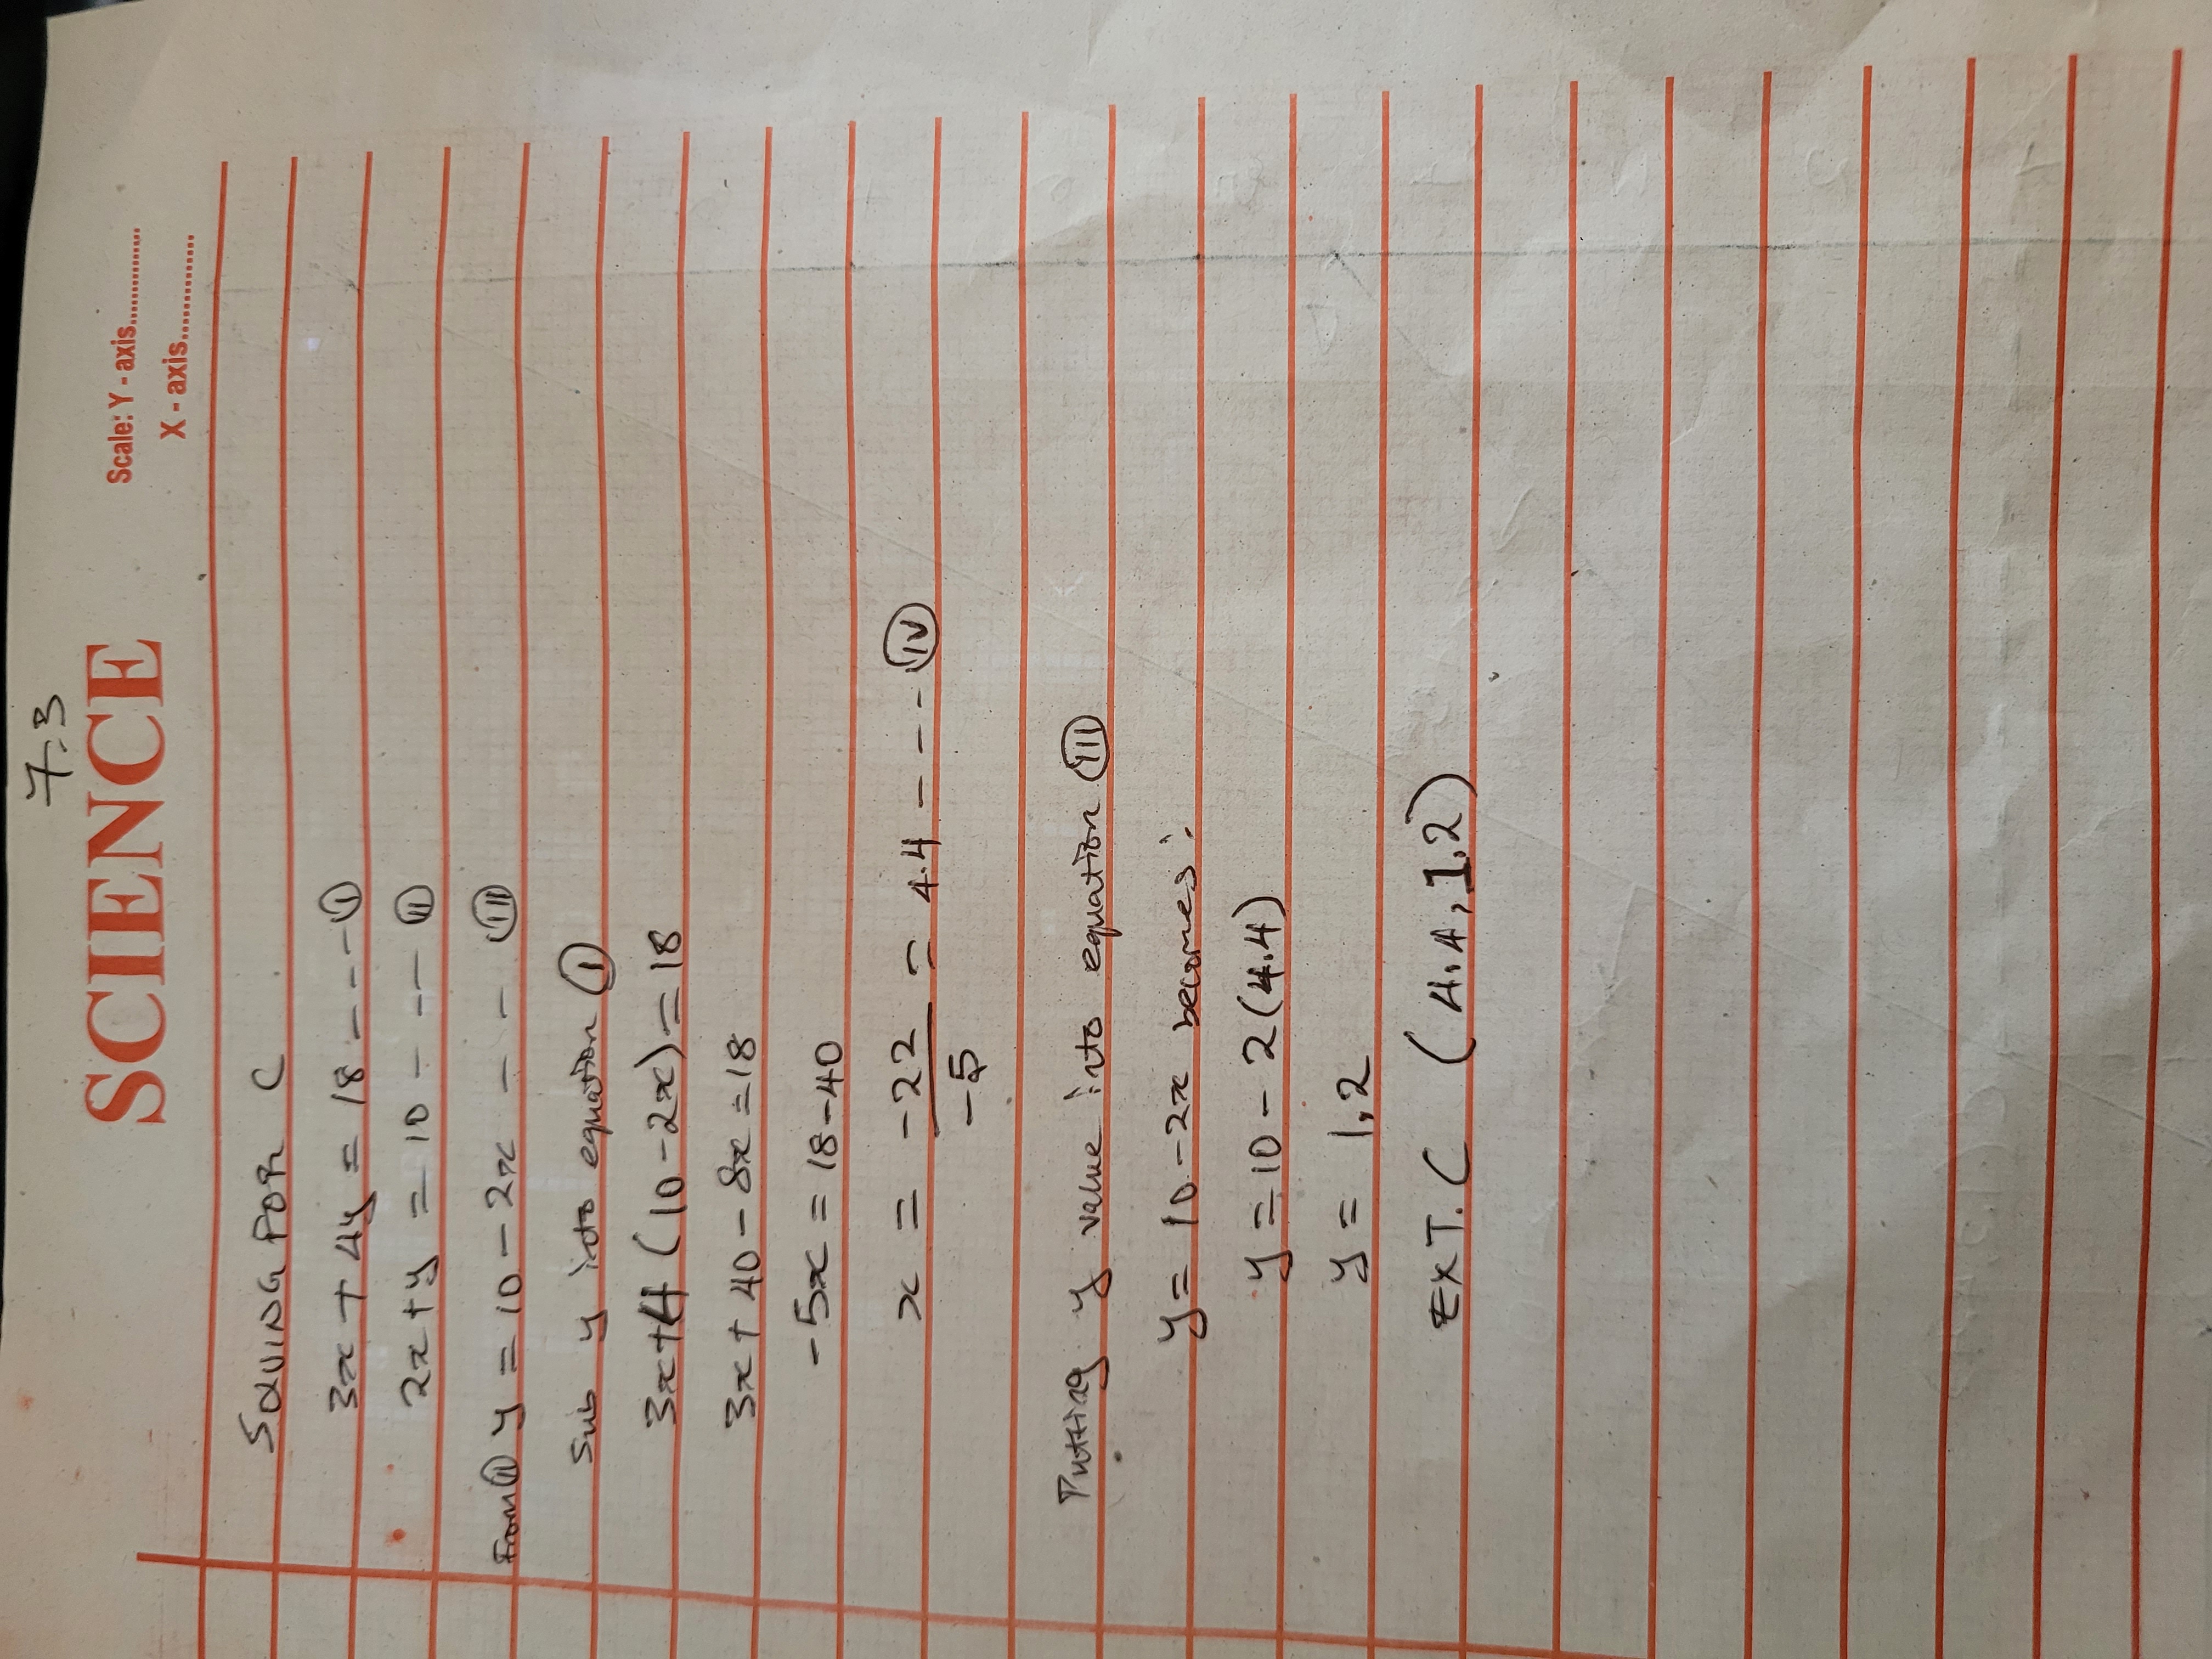 7.3
SCIENCE
Scale: Y - axis...............
X - axis...............
SOLVING FOR C
3x + 4y = 18 - - - (I)
2x + y = 10 - - - (II)
From (II) y = 10 - 2x - - (III)
Sub y into equation (I)
3x+4 (10-2x) = 18
3x + 40 - 8x = 18
-5x = 18-40
x = -22/-5 = 4.4 - - - (IV)
Putting y value into equation (III)
y = 10-2x becomes:
y = 10 - 2(4.4)
y = 1.2
EXT. C (4.4, 1.2)